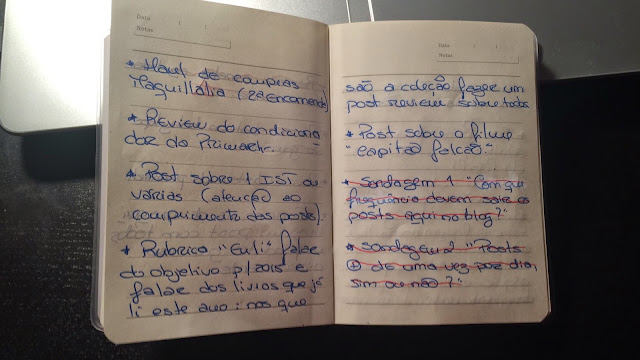 Data / /
Notas
* Haul de compras
Maquillália (2ª Encomenda)
* Review do condiciona
dor da Primark.
* Post sobre 1 IST ou
várias (atenção ao
comprimento dos posts).
* Rubrica "Eu li" falar
do objetivo p/2015 e
falar dos livros que já
li este ano; nos que
Data / /
Notas
são a coleção fazer um
post review sobre todos
* Post sobre o filme
"Capitão Falcão."
* Sondagem 1 "Com que
frequência devem sair os
posts aqui no blog?"
* Sondagem 2 "Posts
+ de uma vez por dia,
sim ou não?"